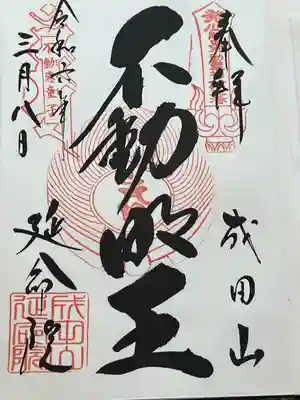 奉拝
成田山
不動明王
令和六年
三月八日
延命院